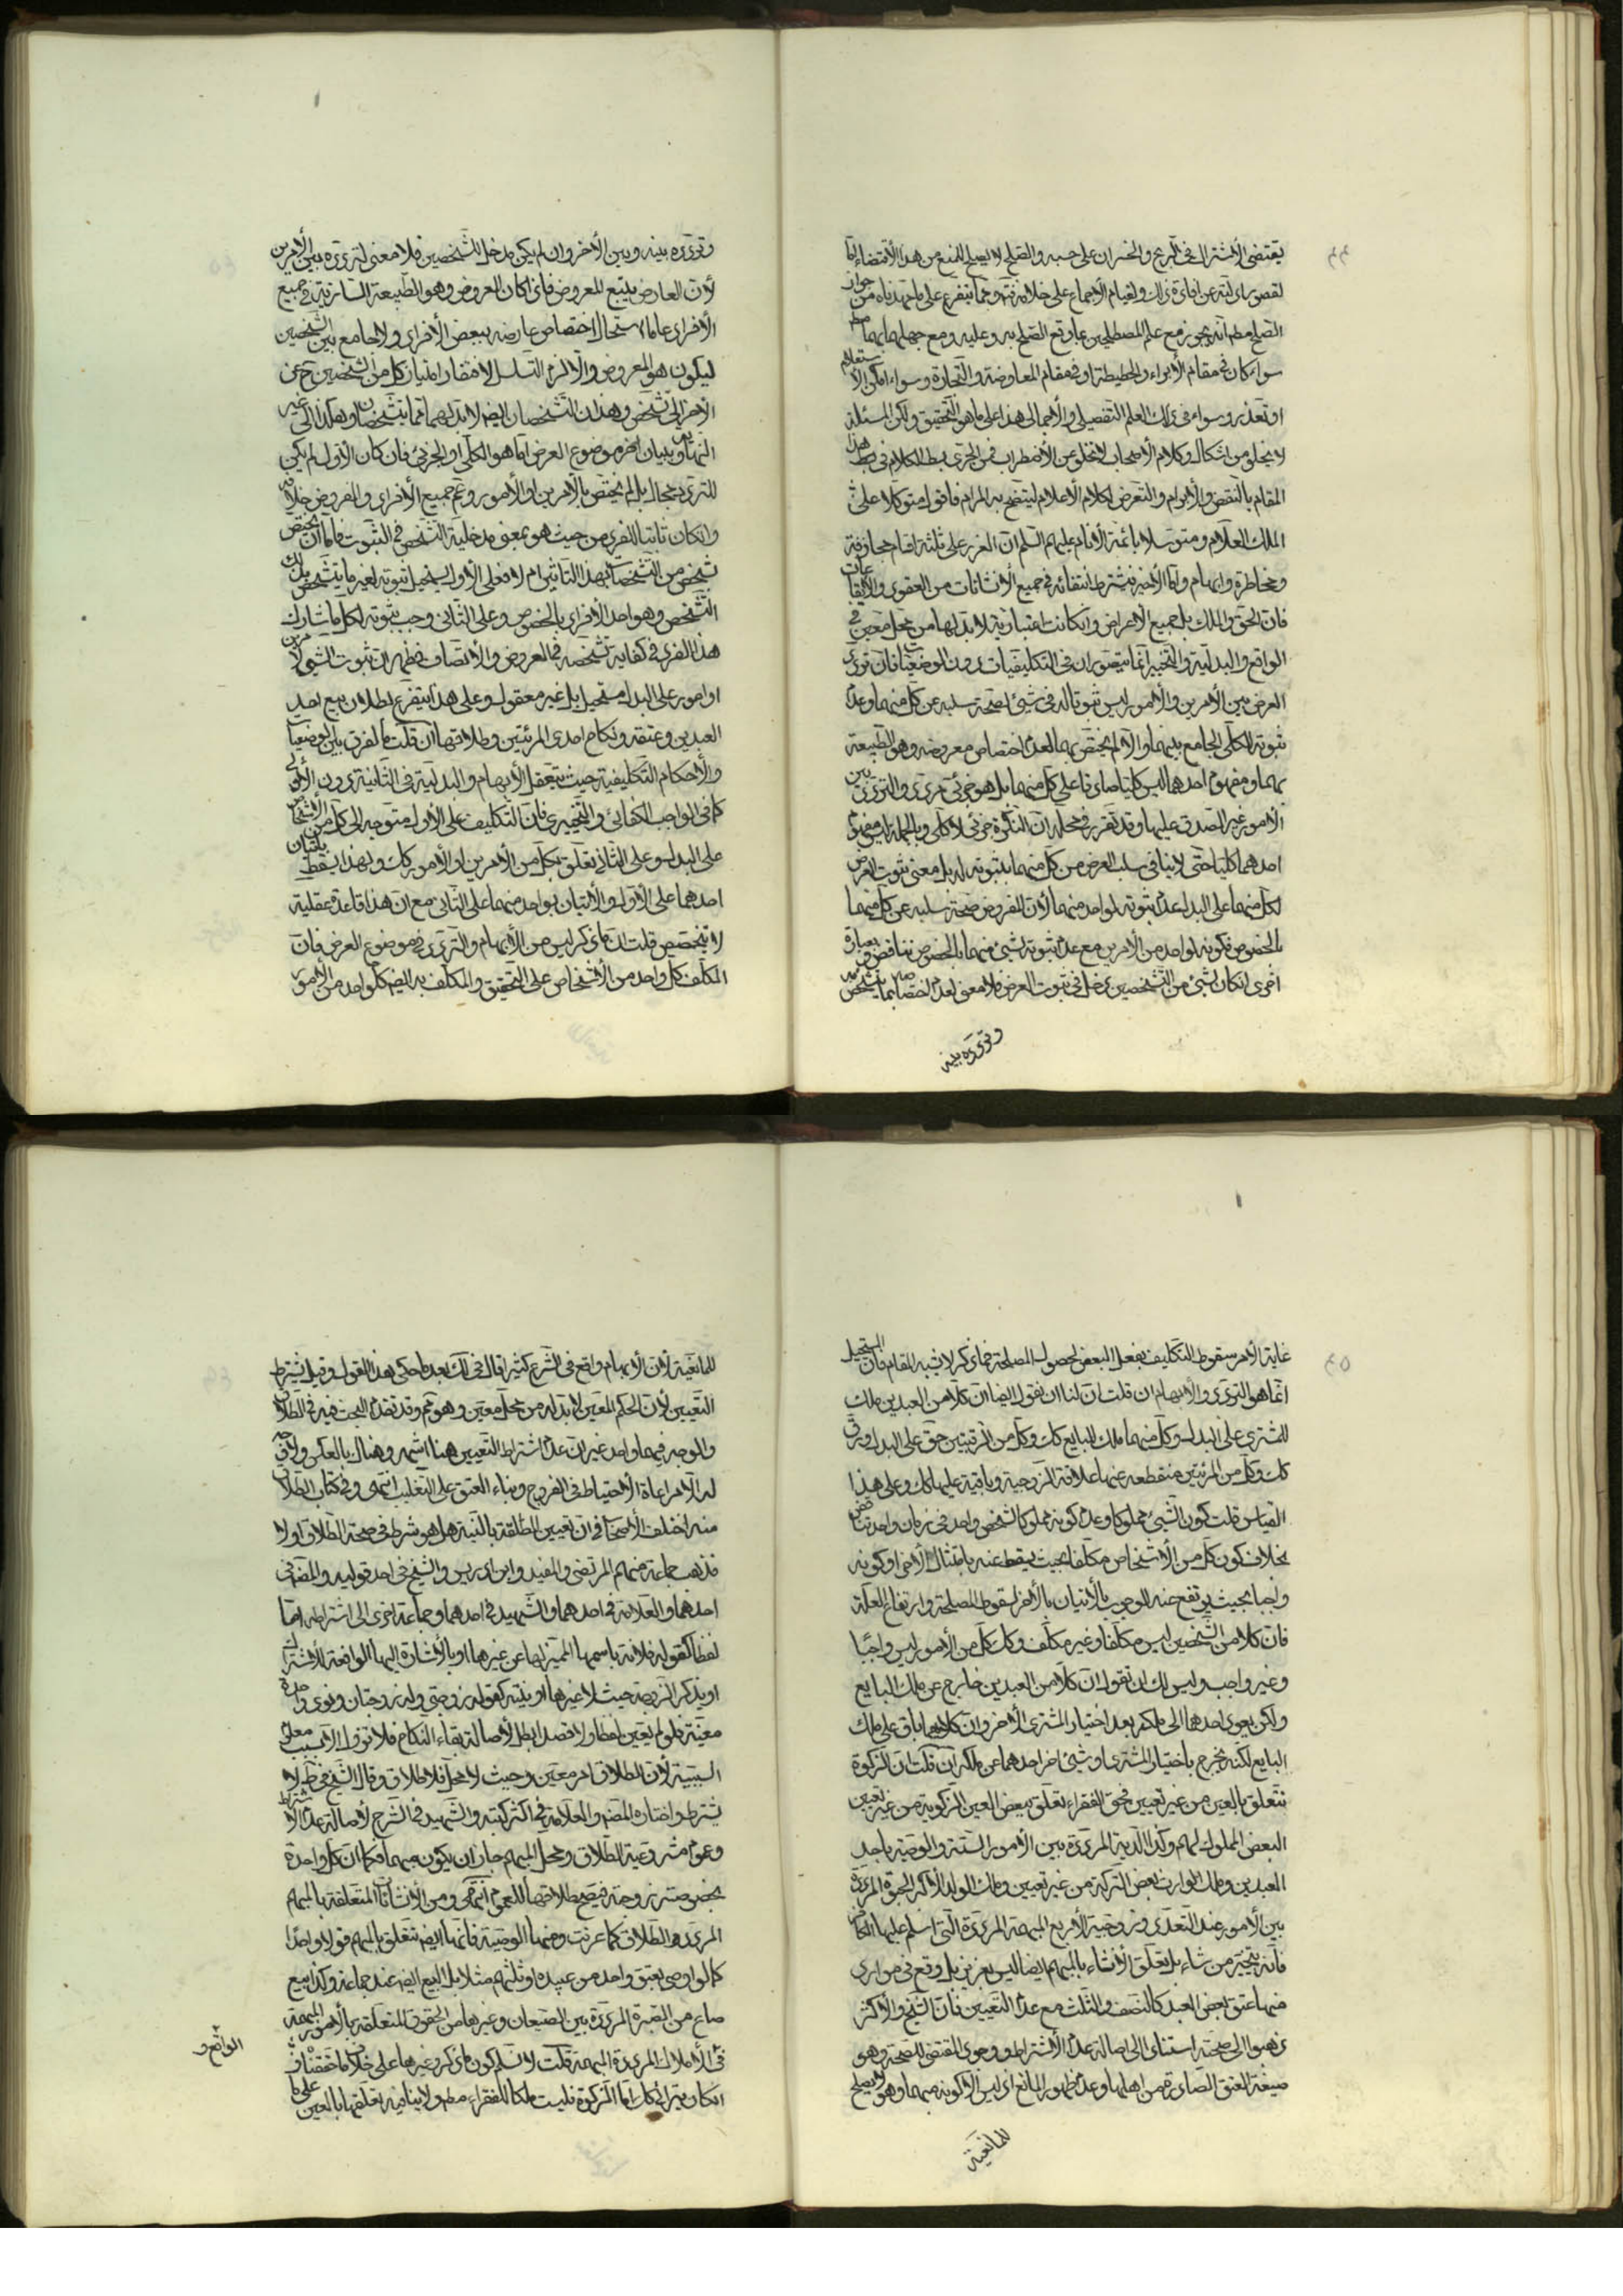 يقتضى الاشتراك فى الربح والخسران على حسبه والصلح لا يصلح للمنع من هذا الاقتضاء امّا
لقصور ادلته عن افادة ذلك ولقيام الاجماع على خلافه ثم ممّا يتفرع على ما مهدناه من جواز
الصلح مطم انه يجوز مع علم المصطلحين بما وقع الصلح به وعليه ومع جهلهما بهما مطم
سواء كان فى مقام الابراء والحطيطة او فى مقام المعاوضة والتجارة وسواء امكن الاستعلام
او تعذر وسواء فى ذلك العلم التفصيلى والاجمالى هذا على ما هو التحقيق ولكن المسئلة
لا يخلو من اشكال وكلام الاصحاب لا يخلو عن الاضطراب فمن الحرى بسط الكلام فى هذا
المقام بالنقض والابرام والتعرض لكلام الاعلام ليتضح به المرام فاقول متوكلا على
الملك العلام ومتوسلا بائمة الانام عليهم السلم ان الغرر على ثلثة اقسام مجازفة
ومخاطرة وابهام وامّا الاخير فيشترط انتفائه فى جميع الانشائات من العقود والايقاعات
فان الحق والملك بل جميع الاعراض وان كانت اعتبارية لا بد لها من محل معين فى
الواقع والبدلية والتخيير انما يتصوران فى التكليفيات دون الوضعيات فان تردد
العرض بين الامرين والامور ليس ثبوتا له فى شيئ لصحة سلبه عن كل منهما وعدم
ثبوته للكلى الجامع بينهما والا لم يختص بهما لعدم اختصاص معروضه وهو الطبيعة
بهما ومفهوم احدهما ليس كليا صادقا على كل منهما بل هو جزئى مردد والتردد بين
الامور غير الصدق عليها وقد تقرر فى محله ان النكرة جزئى لا كلى وبالجملة ليس مفهوم
احدهما كليا حتى لا ينافى سلب العرض من كل منهما بثبوته له بل معنى ثبوت العرض
لكل منهما على البدل عدم ثبوته لواحد منهما لان المفروض صحة سلبه عن كل منهما
بالخصوص فكونه لواحد من الامرين مع عدم ثبوته لشيئ منهما بالخصوص تناقض وبعبارة
اخرى ان كان لشيئ من التشخصين دخل فى ثبوت العرض فلا معنى لعدم اختصاصه بما يتشخص به
وتردده بينه
وتردده بينه وبين الاخر وان لم يكن مدخل للتشخصين فلا معنى لتردده بين الامرين
لان العارض يتبع المعروض فاذا كان المعروض وهو الطبيعة السارية فى جميع
الافراد عاما استحال اختصاص عارضه ببعض الافراد ولا جامع بين الشخصين
ليكون هو المعروض والا لزم التسلسل لافتقار امتياز كل من الشخصين ح عن
الاخر الى تشخص وهذان التشخصان ايضا لا بد لهما مما يتشخصان به وهكذا الى غير
النهاية وببيان اخر موضوع العرض اما هو الكلى او الجزئى فان كان الاول لم يكن
للتردد مجال بل لم يختص بالامرين او الامور وعم جميع الافراد والمفروض خلافه
وان كان ثابتا للفرد من حيث هو بمعنى مدخلية التشخص فى الثبوت فاما ان يختص
شخص من التشخصات بهذا التاثير ام لا فعلى الاول يستحيل ثبوته لغير ما يتشخص بذلك
التشخص وهو احد الافراد بالخصوص وعلى الثانى وجب ثبوته لكل ما شارك
هذا الفرد فى كفاية تشخصه فى العروض والاتصاف فظهر ان ثبوت الشيئ لامرين
او امور على البدل مستحيل بل غير معقول وعلى هذا يتفرع بطلان بيع احد
العبدين وعتقه ونكاح احدى المرئتين وطلاقها ان قلت ما الفرق بين الوضعيات
والاحكام التكليفية حيث يتعقل الابهام والبدلية فى الثانية دون الاولى
كما فى الواجب الكفائى والتخييرى فان التكليف على الاول متوجه الى كل من الاشخاص
على البدل وعلى الثانى تعلق بكل من الامرين او الامور كك ولهذا يسقط باتيان
احدهما على الاول والاتيان بواحد منهما على الثانى مع ان هذا قاعدة عقلية
لا يتخصص قلت ان ما ذكر ليس من الابهام والتردد فى موضوع العرض فان
المكلف كل واحد من الاشخاص على التحقيق والمكلف به ايضا كل واحد من الامور
غاية الامر سقوط التكليف بفعل البعض لحصول المصلحة فما ذكر لا يشبه المقام فان المستحيل
انما هو التردد والابهام ان قلت ان لنا ان نقول ايضا ان كلا من العبدين ملك
للمشترى على البدل وكل منهما ملك للبايع كك وكل من الرقبتين حق على البدل ورق
كك وكل من المرئتين منقطعه عنها علاقة الزوجية وباقية عليها كك وعلى هذا
القياس قلت كون الشيئ مملوكا وعدم كونه مملوكا لشخص واحد فى زمان واحد تناقض
بخلاف كون كل من الاشخاص مكلفا بحيث يسقط عنه بامتثال الاخر او كونه
واجبا بحيث يرتفع عنه الوجوب بالاتيان بالاخر لسقوط المصلحة وارتفاع العلة
فان كلا من الشخصين ليس مكلفا وغير مكلف وكك كل من الامور ليس واجبا
وغير واجب وليس لك ان تقول ان كلا من العبدين خارج عن ملك البايع
ولكن يعود احدهما الى ملكه بعد اختيار المشترى الاخر وان كلاهما باق على ملك
البايع لكنه يخرج باختيار المشترى او شيئ اخر احدهما عن ملكه ان قلت ان الزكوة
تتعلق بالعين من غير تعيين فحق الفقراء تعلق ببعض العين الزكوية من غير تعيين
البعض المملوك لهم وكذا الدية المرددة بين الامور الستة والوصية باحد
العبدين وملك الوارث بعض التركة من غير تعيين وملك الولد الاكبر الحبوة المرددة
بين الامور عند التعدد وزوجية الاربع المبهمة المرددة التى اسلم عليها الكافر
فانه يتخير من شاء بل تعلق الانشاء بالمبهم ايضا ليس بعزيز بل وقع فى موارد
منها عتق بعض العبد كالنصف والثلث مع عدم التعيين فان الشيخ والاكثر
ذهبوا الى صحته استنادا الى اصالة عدم الاشتراط ووجود المقتضى للصحة وهو
صيغة العتق الصادرة من اهلها وعدم ظهور المانع اذ ليس الا كونه مبهما وهو لا يصلح
للمانعية
للمانعية لان الابهام واقع فى الشرع كثيرا قال فى لك بعد ما حكى هذا القول وقيل يشترط
التعيين لان الحكم المعين لا بد له من محل معين وهو مم وقد تقدم البحث فيه فى الطلاق
والوجه فيهما واحد غير ان عدم اشتراط التعيين هنا اشهر وهناك بالعكس ولا وجه
له الا مراعاة الاحتياط فى الفروج وبناء العتق على التغليب انتهى وفى كتاب الطلاق
منه اختلف الاصحاب فى ان تعيين المطلقة بالنية هل هو شرط فى صحة الطلاق او لا
فذهب جماعة منهم المرتضى والمفيد وابن ادريس والشيخ فى احد قوليه والمص فى
احدهما والعلامة فى احدهما والشهيد فى احدهما وجماعة اخرى الى اشتراطه اما
لفظا كقوله فلانة باسمها المميز لها عن غيرها او بالاشارة اليها الرافعة للاشتراك
او يذكر الزوجة حيث لا غيرها او بنيته كقوله زوجتى وله زوجتان ونوى واحدة
معينة فلو لم يعين لفظا ولا قصدا بطل لاصالة بقاء النكاح فلا تزول الا بسبب معلوم
السببية لان الطلاق امر معين وحيث لا محل فلا طلاق وقال الشيخ فى ط لا
يشترط واختاره المص والعلامة فى اكثر كتبه والشهيد فى الشرح لاصالة عدم الاشتراط
وعموم مشروعية الطلاق ومحل المبهم جاز ان يكون مبهما فكما ان كل واحدة
بخصوصها زوجة فيصح طلاقها للعموم انتهى ومن الانشائات المتعلقة بالمبهم
المردد هو الطلاق كما عرفت ومنها الوصية فانها ايضا تتعلق بالمبهم قولا واحدا
كما لو اوصى بعتق واحد من عبيده او ثلثهم مثلا بل البيع ايضا عند جماعة وكذا بيع
صاع من الصبرة المرددة بين الصيعان وغيرها من الحقوق المتعلقة بالامور المبهمة
فى الاملاك المرددة المبهمة قلت لا نسلم كون ما ذكر وغيرها على خلاف ما حققناه فى
الواقع و
ان كان يترائى كك اما الزكوة فليست ملكا للفقراء مطم ولا ينافيه تعلقها بالعين على ما